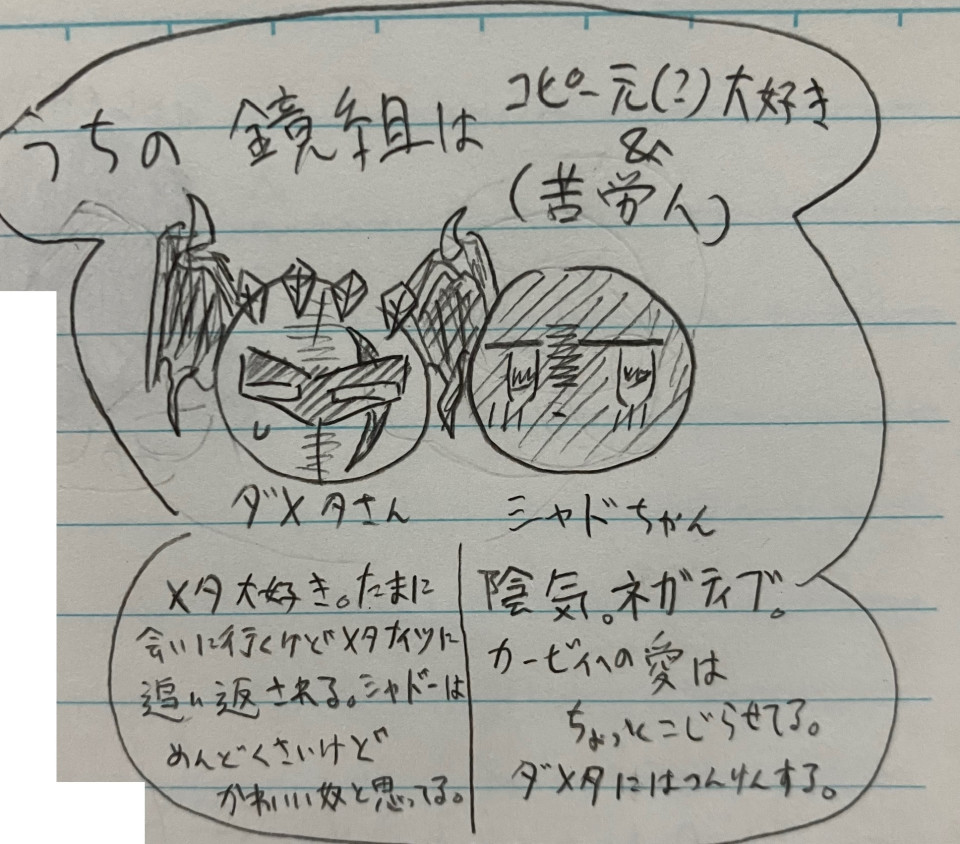 うちの 鏡組は
コピー元(?)大好き
&
(苦労人)
ダメタさん
シャドちゃん
メタ大好き。たまに
会いに行くけどメタナイツに
追い返される。シャドーは
めんどくさいけど
かわいい奴と思ってる。
陰気。ネガティブ。
カービィへの愛は
ちょっとこじらせてる。
ダメタにはつんけんする。